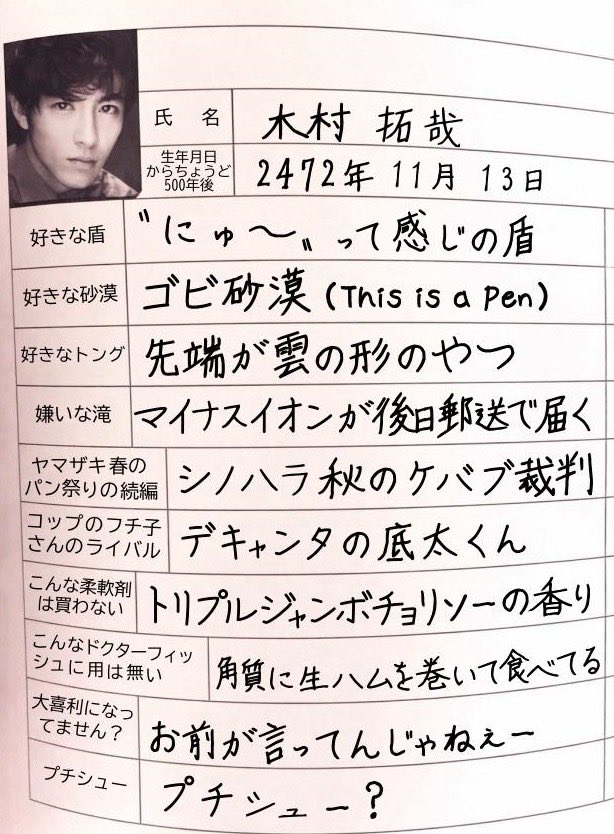 氏 名
木村 拓哉
生年月日
からちょうど
500年後
2472年 11月 13日
好きな盾
〝にゅ〜〟って感じの盾
好きな砂漠
ゴビ砂漠(This is a Pen)
好きなトング
先端が雲の形のやつ
嫌いな滝
マイナスイオンが後日郵送で届く
ヤマザキ春の
パン祭りの続編
シノハラ秋のケバブ裁判
コップのフチ子
さんのライバル
デキャンタの底太くん
こんな柔軟剤
は買わない
トリプルジャンボチョリソーの香り
こんなドクターフィッ
シュに用は無い
角質に生ハムを巻いて食べてる
大喜利になっ
てません?
お前が言ってんじゃねぇー
プチシュー
プチシュー?